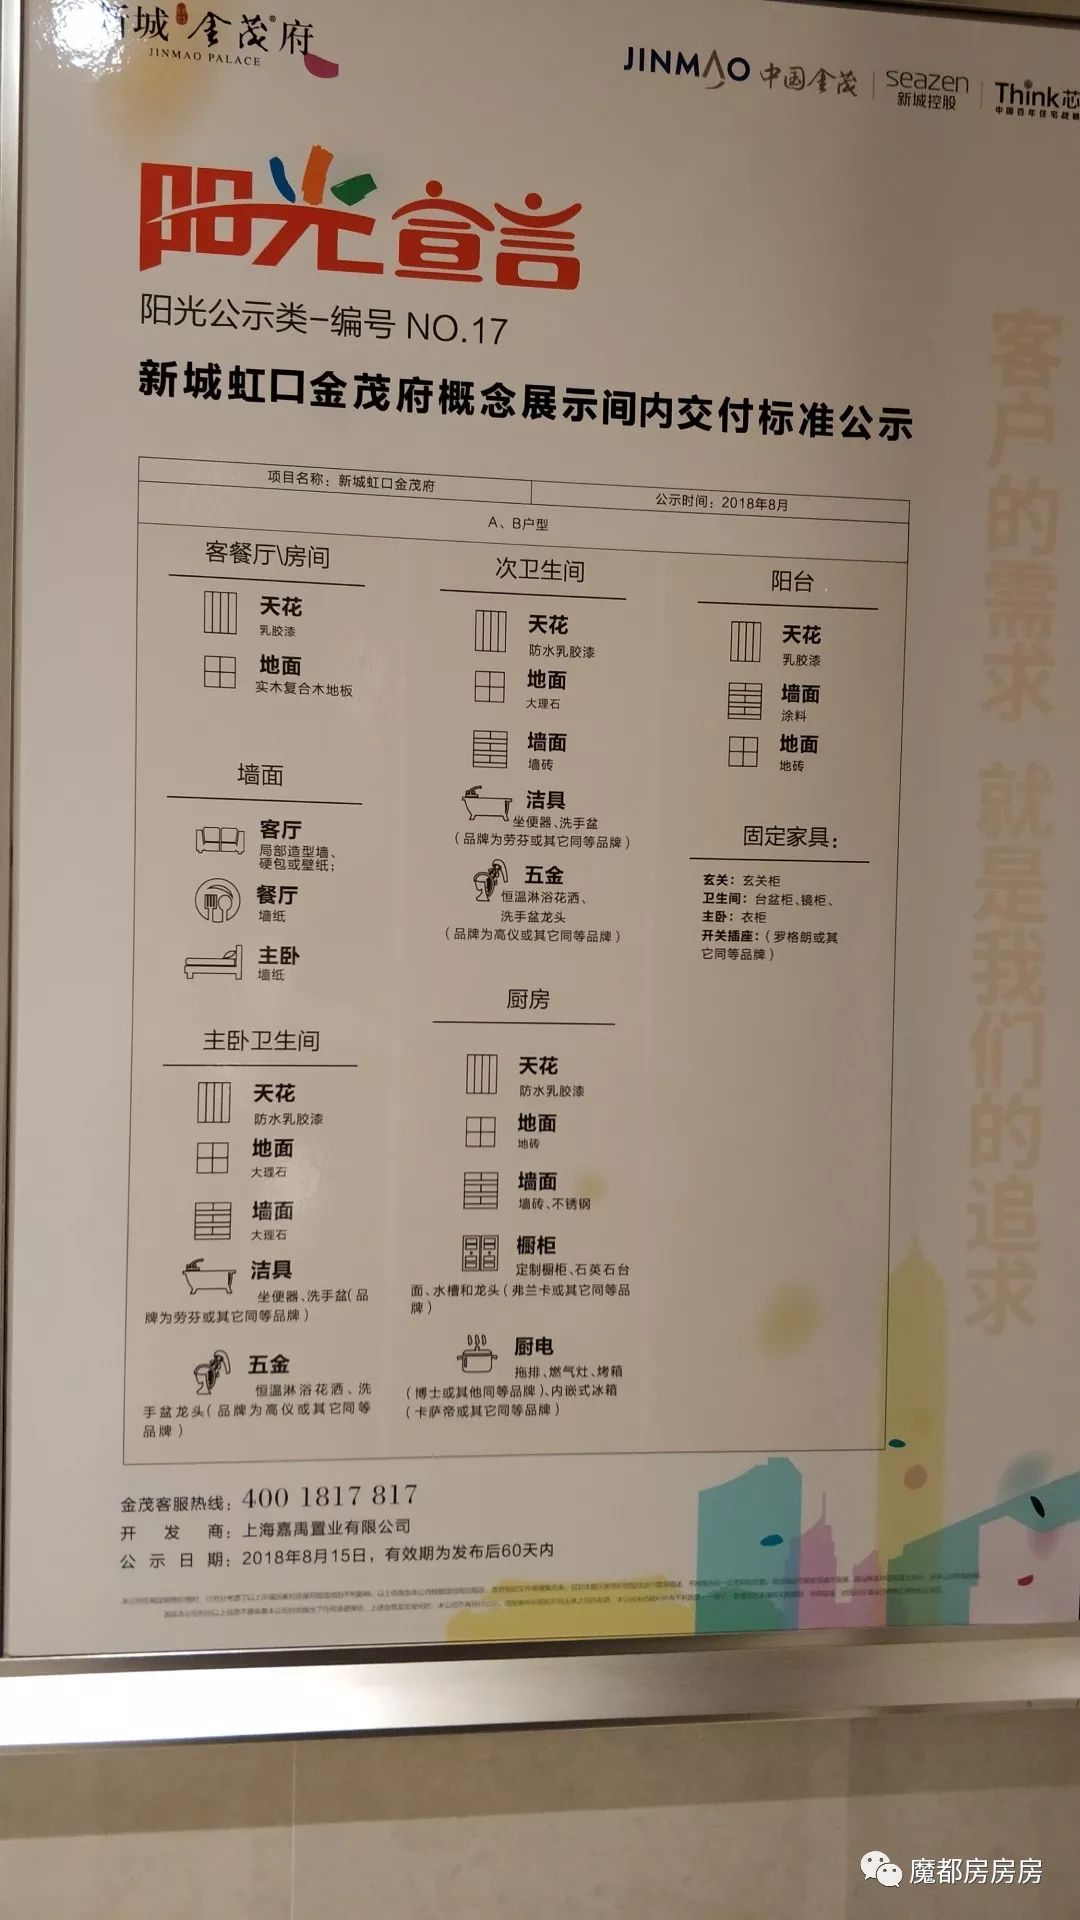 新城 金茂府
JINMAO PALACE
JINMAO 中国金茂
seazen
新城控股
Think芯
中国百年住宅战略
阳光宣言
阳光公示类-编号 NO.17
新城虹口金茂府概念展示间内交付标准公示
项目名称：新城虹口金茂府
公示时间：2018年8月
A、B户型
客餐厅\房间
天花
乳胶漆
地面
实木复合木地板
墙面
客厅
局部造型墙、
硬包或壁纸；
餐厅
墙纸
主卧
墙纸
主卧卫生间
天花
防水乳胶漆
地面
大理石
墙面
大理石
洁具
坐便器、洗手盆（品
牌为劳芬或其它同等品牌）
五金
恒温淋浴花洒、洗
手盆龙头（品牌为高仪或其它同等
品牌）
次卫生间
天花
防水乳胶漆
地面
大理石
墙面
墙砖
洁具
坐便器、洗手盆
（品牌为劳芬或其它同等品牌）
五金
恒温淋浴花洒、
洗手盆龙头
（品牌为高仪或其它同等品牌）
厨房
天花
防水乳胶漆
地面
地砖
墙面
墙砖、不锈钢
橱柜
定制橱柜、石英石台
面、水槽和龙头（弗兰卡或其它同等品
牌）
厨电
拖排、燃气灶、烤箱
（博士或其他同等品牌）、内嵌式冰箱
（卡萨帝或其它同等品牌）
阳台
天花
乳胶漆
墙面
涂料
地面
地砖
固定家具：
玄关：玄关柜
卫生间：台盆柜、镜柜、
主卧：衣柜
开关插座：（罗格朗或其
它同等品牌）
客户的需求 就是我们的追求
金茂客服热线：400 1817 817
开发商：上海嘉禹置业有限公司
公示日期：2018年8月15日，有效期为发布后60天内
魔都房房房